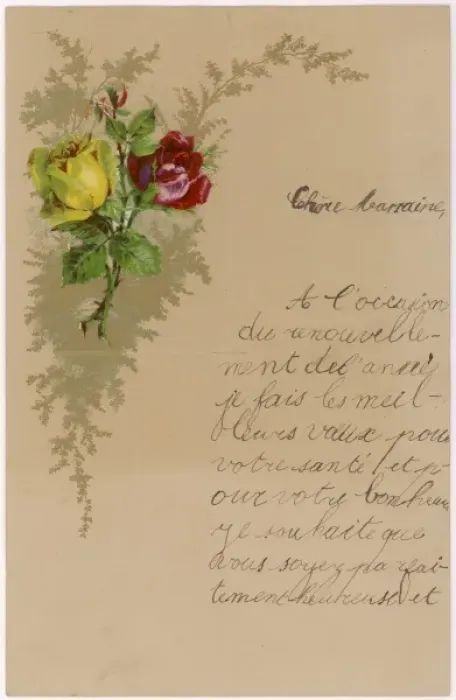 Chère Marraine,
A l'occasion
du renouvelle-
ment de l'année
je fais les meil-
leurs vœux pour
votre santé et p-
our votre bonheur
je souhaite que
vous soyez parfai-
tement heureuse et